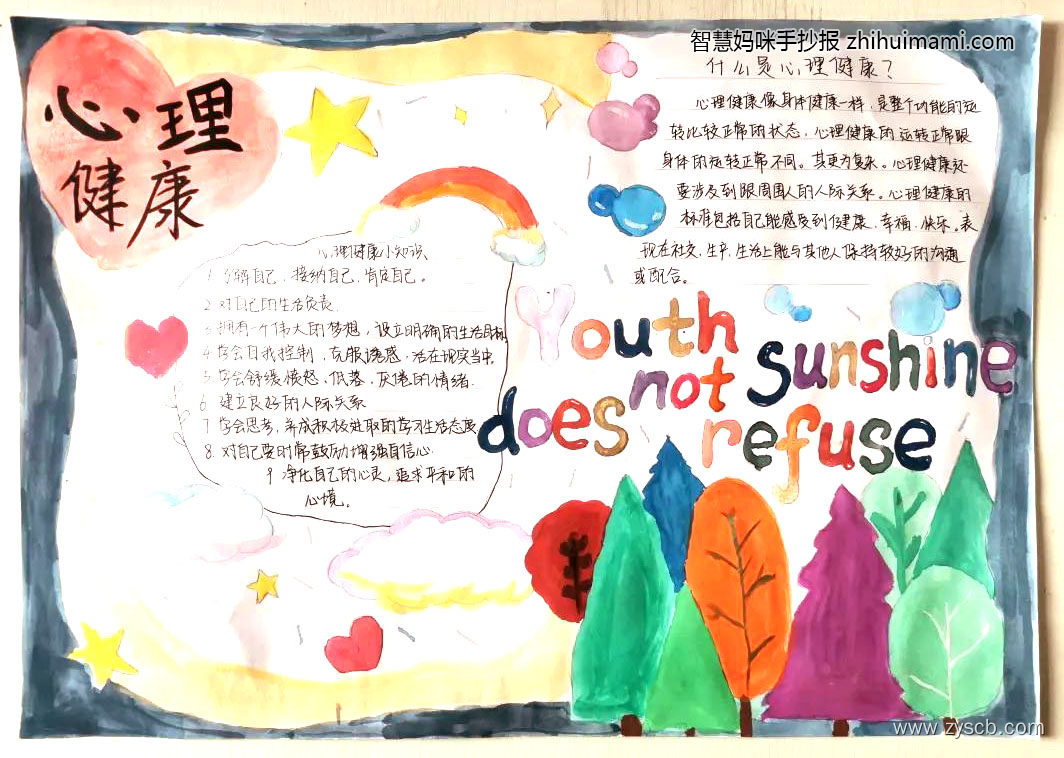 心理
健康
智慧妈咪手抄报 zhihuimami.com
什么是心理健康？
心理健康像身体健康一样，是整个功能的运
转比较正常的状态，心理健康的运转正常跟
身体的运转正常不同。其更为复杂。心理健康还
要涉及到跟周围人的人际关系。心理健康的
标准包括自己能感受到健康、幸福、快乐。表
现在社交、生产、生活上能与其他人保持较好的沟通
或配合。
心理健康小知识、
1 了解自己、接纳自己、肯定自己。
2 对自己的生活负责.
3 拥有一个伟大的梦想，设立明确的生活目标
4 学会自我控制，克服诱惑，活在现实当中.
5 学会舒缓愤怒、低落、厌倦的情绪.
6 建立良好的人际关系
7 学会思考，养成积极进取的学习生活态度
8. 对自己要时常鼓励增强自信心.
9 净化自己的心灵，追求平和的
心境。
Youth
does not refuse
sunshine
www.zyscb.com